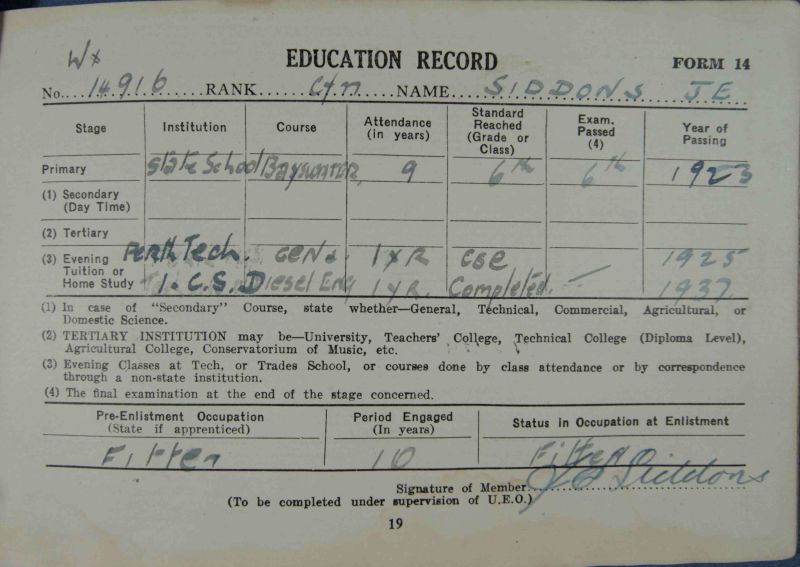 Wx
EDUCATION RECORD FORM 14
No. 14916 RANK Cfn NAME SIDDONS JE
Stage Institution Course Attendance (in years) Standard Reached (Grade or Class) Exam. Passed (4) Year of Passing
Primary State School Bayswater 9 6th 6th 1923
(1) Secondary (Day Time)
(2) Tertiary
(3) Evening Tuition or Home Study Perth Tech. Gen. 1 YR CSE 1925
I.C.S. Diesel Eng 1 YR. Completed. — 1937
(1) In case of "Secondary" Course, state whether—General, Technical, Commercial, Agricultural, or
Domestic Science.
(2) TERTIARY INSTITUTION may be—University, Teachers' College, Technical College (Diploma Level),
Agricultural College, Conservatorium of Music, etc.
(3) Evening Classes at Tech, or Trades School, or courses done by class attendance or by correspondence
through a non-state institution.
(4) The final examination at the end of the stage concerned.
Pre-Enlistment Occupation (State if apprenticed) Period Engaged (In years) Status in Occupation at Enlistment
Fitter 10 Fitter
Signature of Member JE Siddons
(To be completed under supervision of U.E.O.)
19